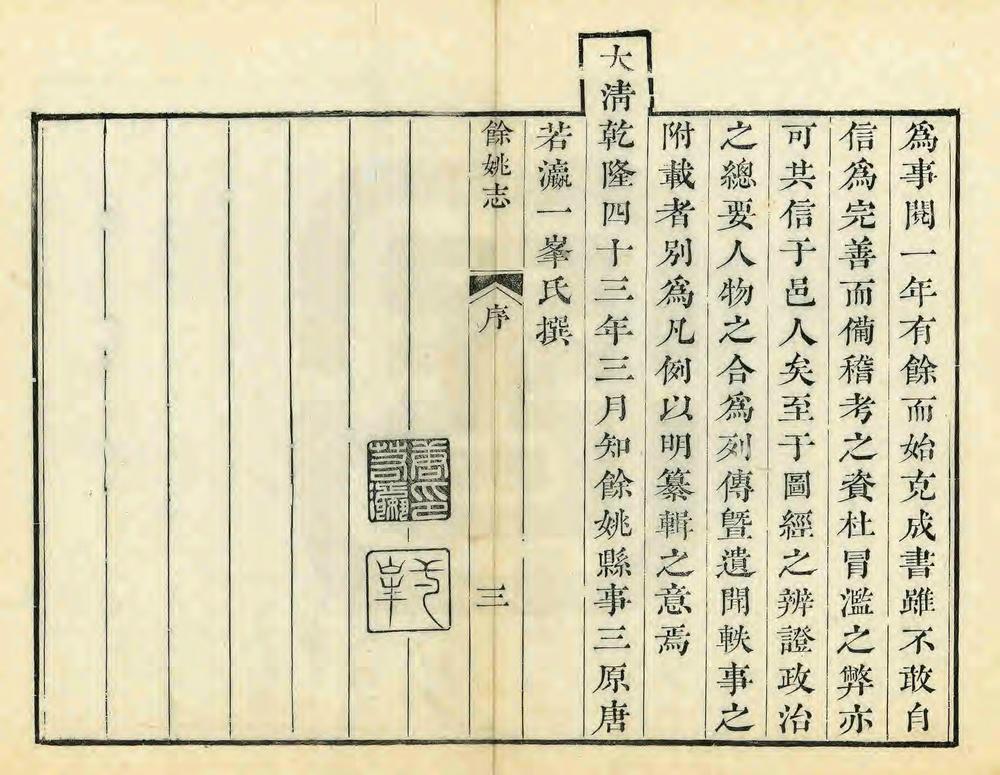 爲事閱一年有餘而始克成書雖不敢自
信爲完善而備稽考之資杜冒濫之弊亦
可共信于邑人矣至于圖經之辨證政治
之總要人物之合爲列傳曁遺聞軼事之
附載者別爲凡例以明纂輯之意焉
大淸乾隆四十三年三月知餘姚縣事三原唐
若瀛一峯氏撰
餘姚志
序
三
唐印若瀛